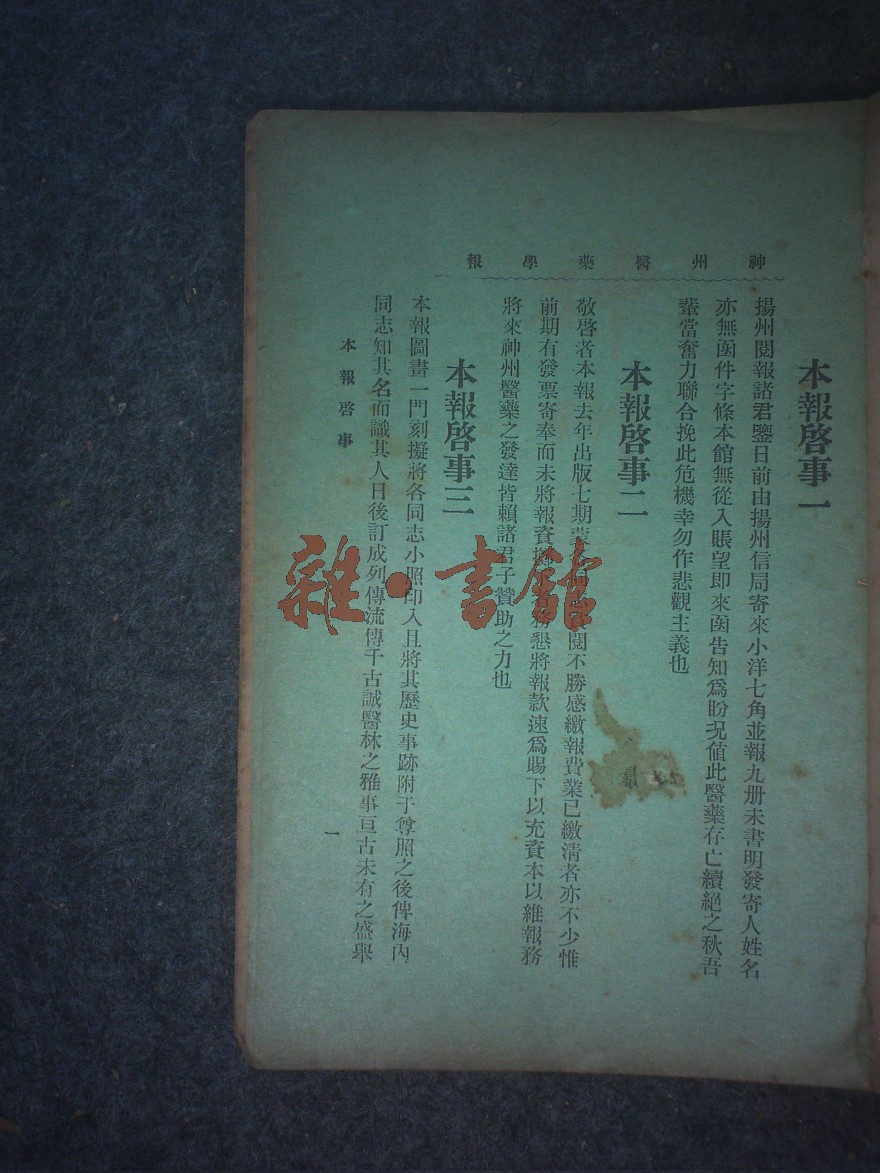 神州醫藥學報
本報啓事一
揚州閱報諸君鑒日前由揚州信局寄來小洋七角並報九册未書明發寄人姓名
亦無函件字條本館無從入賬望即來函告知爲盼况值此醫藥存亡續絕之秋吾
輩當奮力聯合挽此危機幸勿作悲觀主義也
本報啓事二
敬啓者本報去年出版七期蒙閱不勝感繳報費業已繳清者亦不少惟
前期有發票寄奉而未將報資務懇將報款速爲賜下以充資本以維報務
將來神州醫藥之發達皆賴諸君子贊助之力也
本報啓事三
本報圖書一門刻擬將各同志小照印入且將其歷史事跡附于尊照之後俾海內
同志知其名而識其人日後訂成列傳流傳千古誠醫林之雅事亘古未有之盛舉
本報啓事
一
雜·書館